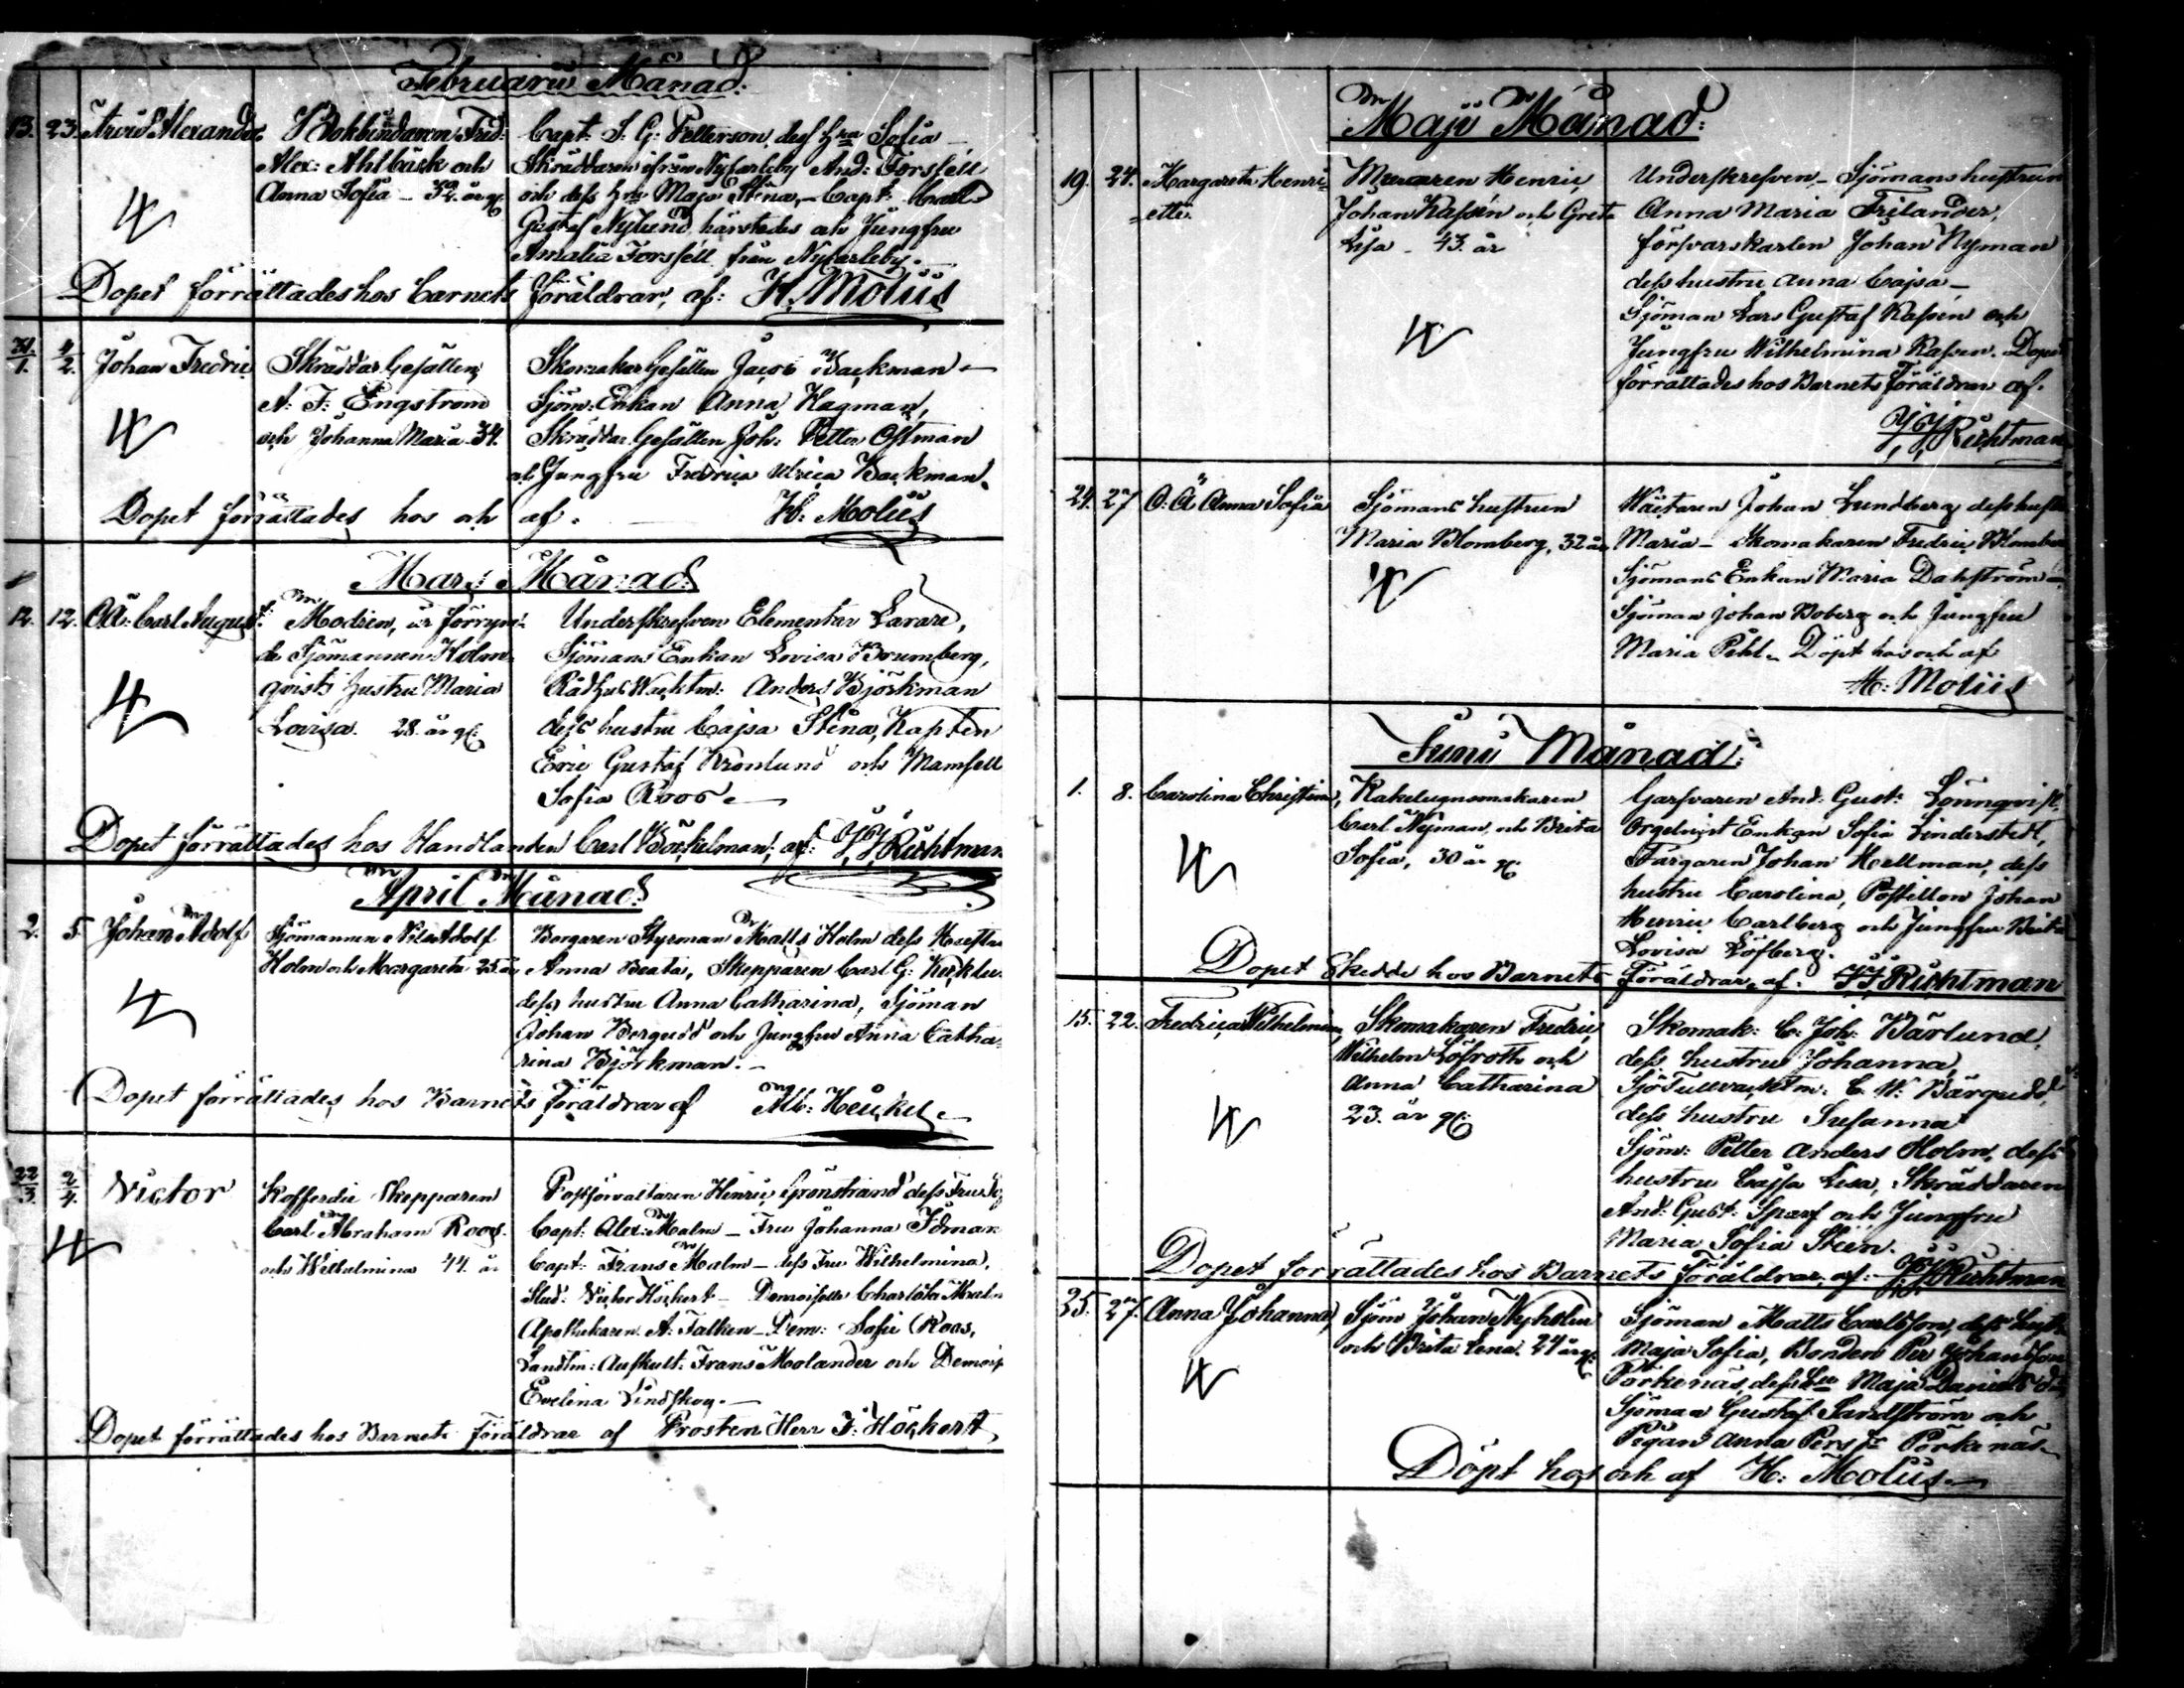 Februarii Månad:
13. 23. Arvid Alexander Bokbindaren Fred: Capt: J. G. Petterson, dess Hu Sofia
Alex: Ahlbäck och Skräddaren ifrån Nycarleby And: Forssell
Anna Sofia - 32. år gl. och dess Hu Maja Stina, - Capt:
Gustaf Nylund härstedes och Jungfru
Amalia Forssell från Nycarleby.
Dopet förrättades hos Barnets föräldrar, af: H. Moliis
31/1. 2. Johan Fredric Skräddar Gesällen Skomakar Gesällen Jacob Backman
A: F: Engström Sjöm: Enkan Anna Hagman,
och Johanna Maria 34. Skräddar Gesällen Joh: Petter Östman
och Jungfru Fredrica Ulrica Backman.
Dopet förrättades hos och af. H: Moliis
Mars Månad:
12. 12. O.Ä: Carl August. Modren, är förrym- Underskrefven Elementar Lärare,
de Sjömannen Holm- Sjömans Enkan Lovisa Brumberg,
qvists hustru Maria Rådhus Wacktm: Anders Björkman
Lovisa. 28. år gl: dess hustru Cajsa Stina, Kapten
Eric Gustaf Kronlund och Mamsell
Sofia Roos
Dopet förrättades hos Handlanden Carl Böckelman; af: J. J. Richtman
April Månad:
2. 5. Johan Adolf Sjömannen Nils Adolf Borgaren Styrman Matts Holm dess Hustru
Holm och Margareta 25. år Anna Beata, Skepparen Carl G:
dess hustru Anna Catharina, Sjöman
Johan Bergudd och Jungfru Anna Catha-
rina Björkman.
Dopet förrättades hos Barnets föräldrar af Alb: Heickel
22/3. 2/4. Victor Kofferdie Skepparen Postförvaltaren Henric Grönstrand dess Fru
Carl Abraham Roos. Capt: Alex: Malm - Fru Johanna Idman
och Wilhelmina 44. år Capt: Frans Malm - dess Fru Wilhelmina,
Stud: Victor Höckert - Demoiselle Charlotta Malm
Apothekaren A: Falken - Dem: Sofie Roos,
Landtm: Auskult: Frans Molander och Demois
Evelina Lindskog.
Dopet förrättades hos Barnets föräldrar af Prosten Herr F: Höckert
Maji Månad:
19. 24. Margareta Henri- Muraren Henric Underskrefven, - Sjömans hustrun
ette. Johan Kassén och Greta Anna Maria Frilander,
Lisa - 43. år försvarskarlen Johan Nyman
dess hustru Anna Cajsa
Sjöman Lars Gustaf Kassén och
Jungfru Wilhelmina Kassen. Dopet
förrättades hos Barnets föräldrar af.
J. J. Richtman
24. 27 O: Ä Anna Sofia Sjömans hustrun Johan Lundberg dess hustru
Maria Blomberg, 32 år Maria - Skomakaren Fredric Blomberg
Sjömans Enkan Maria Dahlström
Sjöman Johan Boberg och Jungfru
Maria Pihl. Döpt hos och af
H: Moliis
Junii Månad:
1. 8. Carolina Christina, Kakelugnsmakaren Garfvaren And: Gust: Lönnqvist.
Carl Nyman, och Brita Orgelnist Enkan Sofia Linderstedt,
Sofia, 30 år gl Färgaren Johan Hellman, dess
hustru Carolina, Postillon Johan
Henric Carlberg och Jungfru Brita
Lovisa Löfberg.
Dopet Skedde hos Barnets föräldrar af: J J Richtman
15. 22. Fredrica Wilhelmina, Skomakaren Fredric Skomak: C: Joh: Bärlund.
Wilhelm Löfroth och dess hustru Johanna,
Anna Catharina Sjötullvacktm: C. W. Bärgudd,
23. år gl: dess hustru Susanna
Sjöm: Petter Anders Holm, dess
hustru Cajsa Lisa, Skräddaren
And: Gust: Sparf och Jungfru
Maria Sofia Steen.
Dopet förrättades hos Barnets föräldrar, af: J J Richtman
25. 27. Anna Johanna, Sjöm Johan Nyholm Sjöman Matts Carlsson, dess hustru
och Brita Lena. 24 år gl: Maja Sofia, Bonden Per Johansson
Pörkenäs, dess Hu Maja Daniels d:
Sjöman Gustaf Sandström och
Pigan Anna Pers fr Pörkenäs
Döpt hos och af H: Moliis